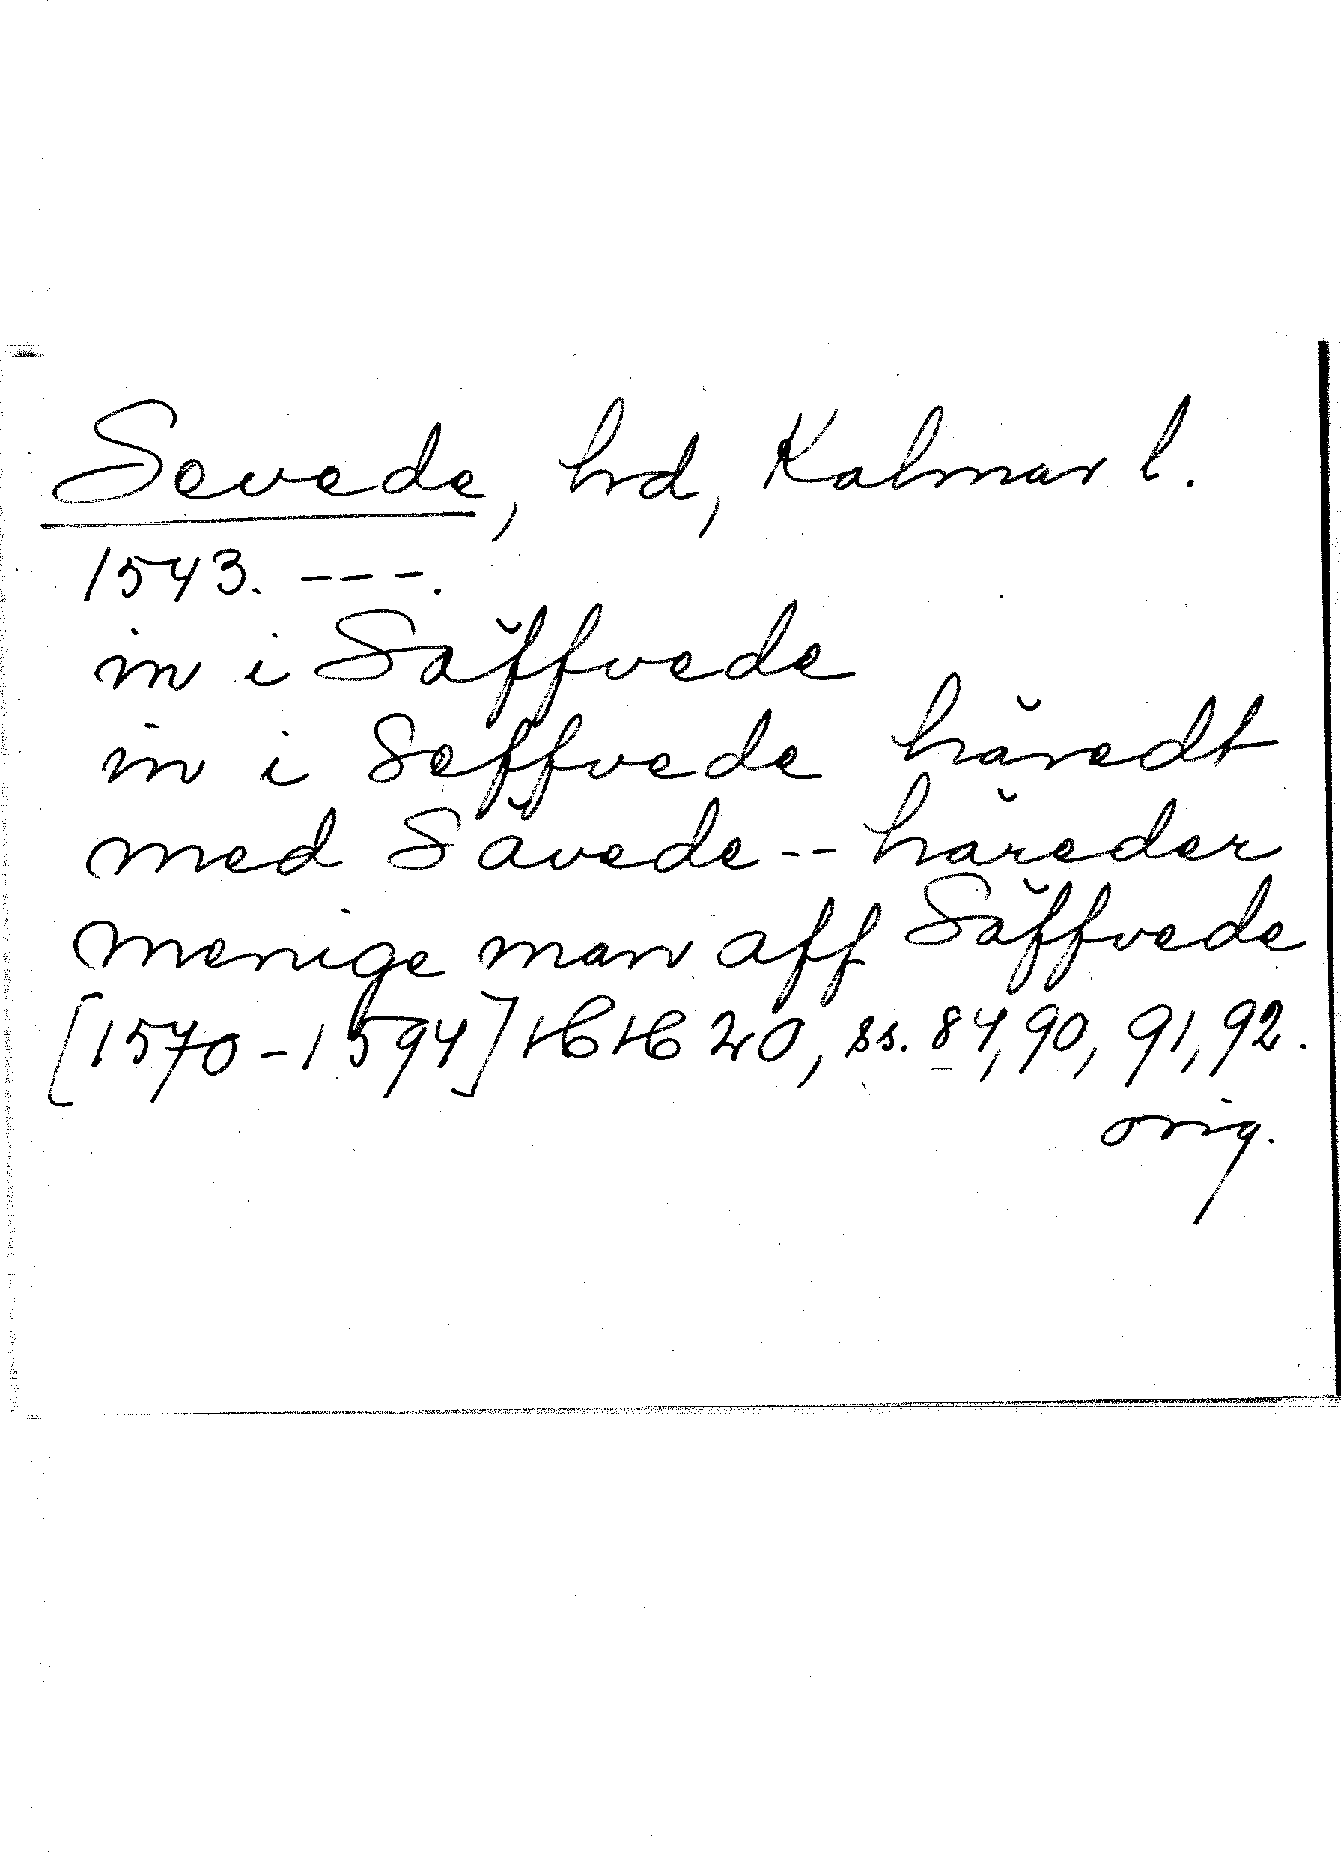 Sevede, hrd, Kalmar l.
1543. ---.
in i Säffvede
in i Seffvede häredt
med Sävede -- häreder
menige man aff Säffvede
[1570-1594] HH 20, ss. 84, 90, 91, 92.
orig.